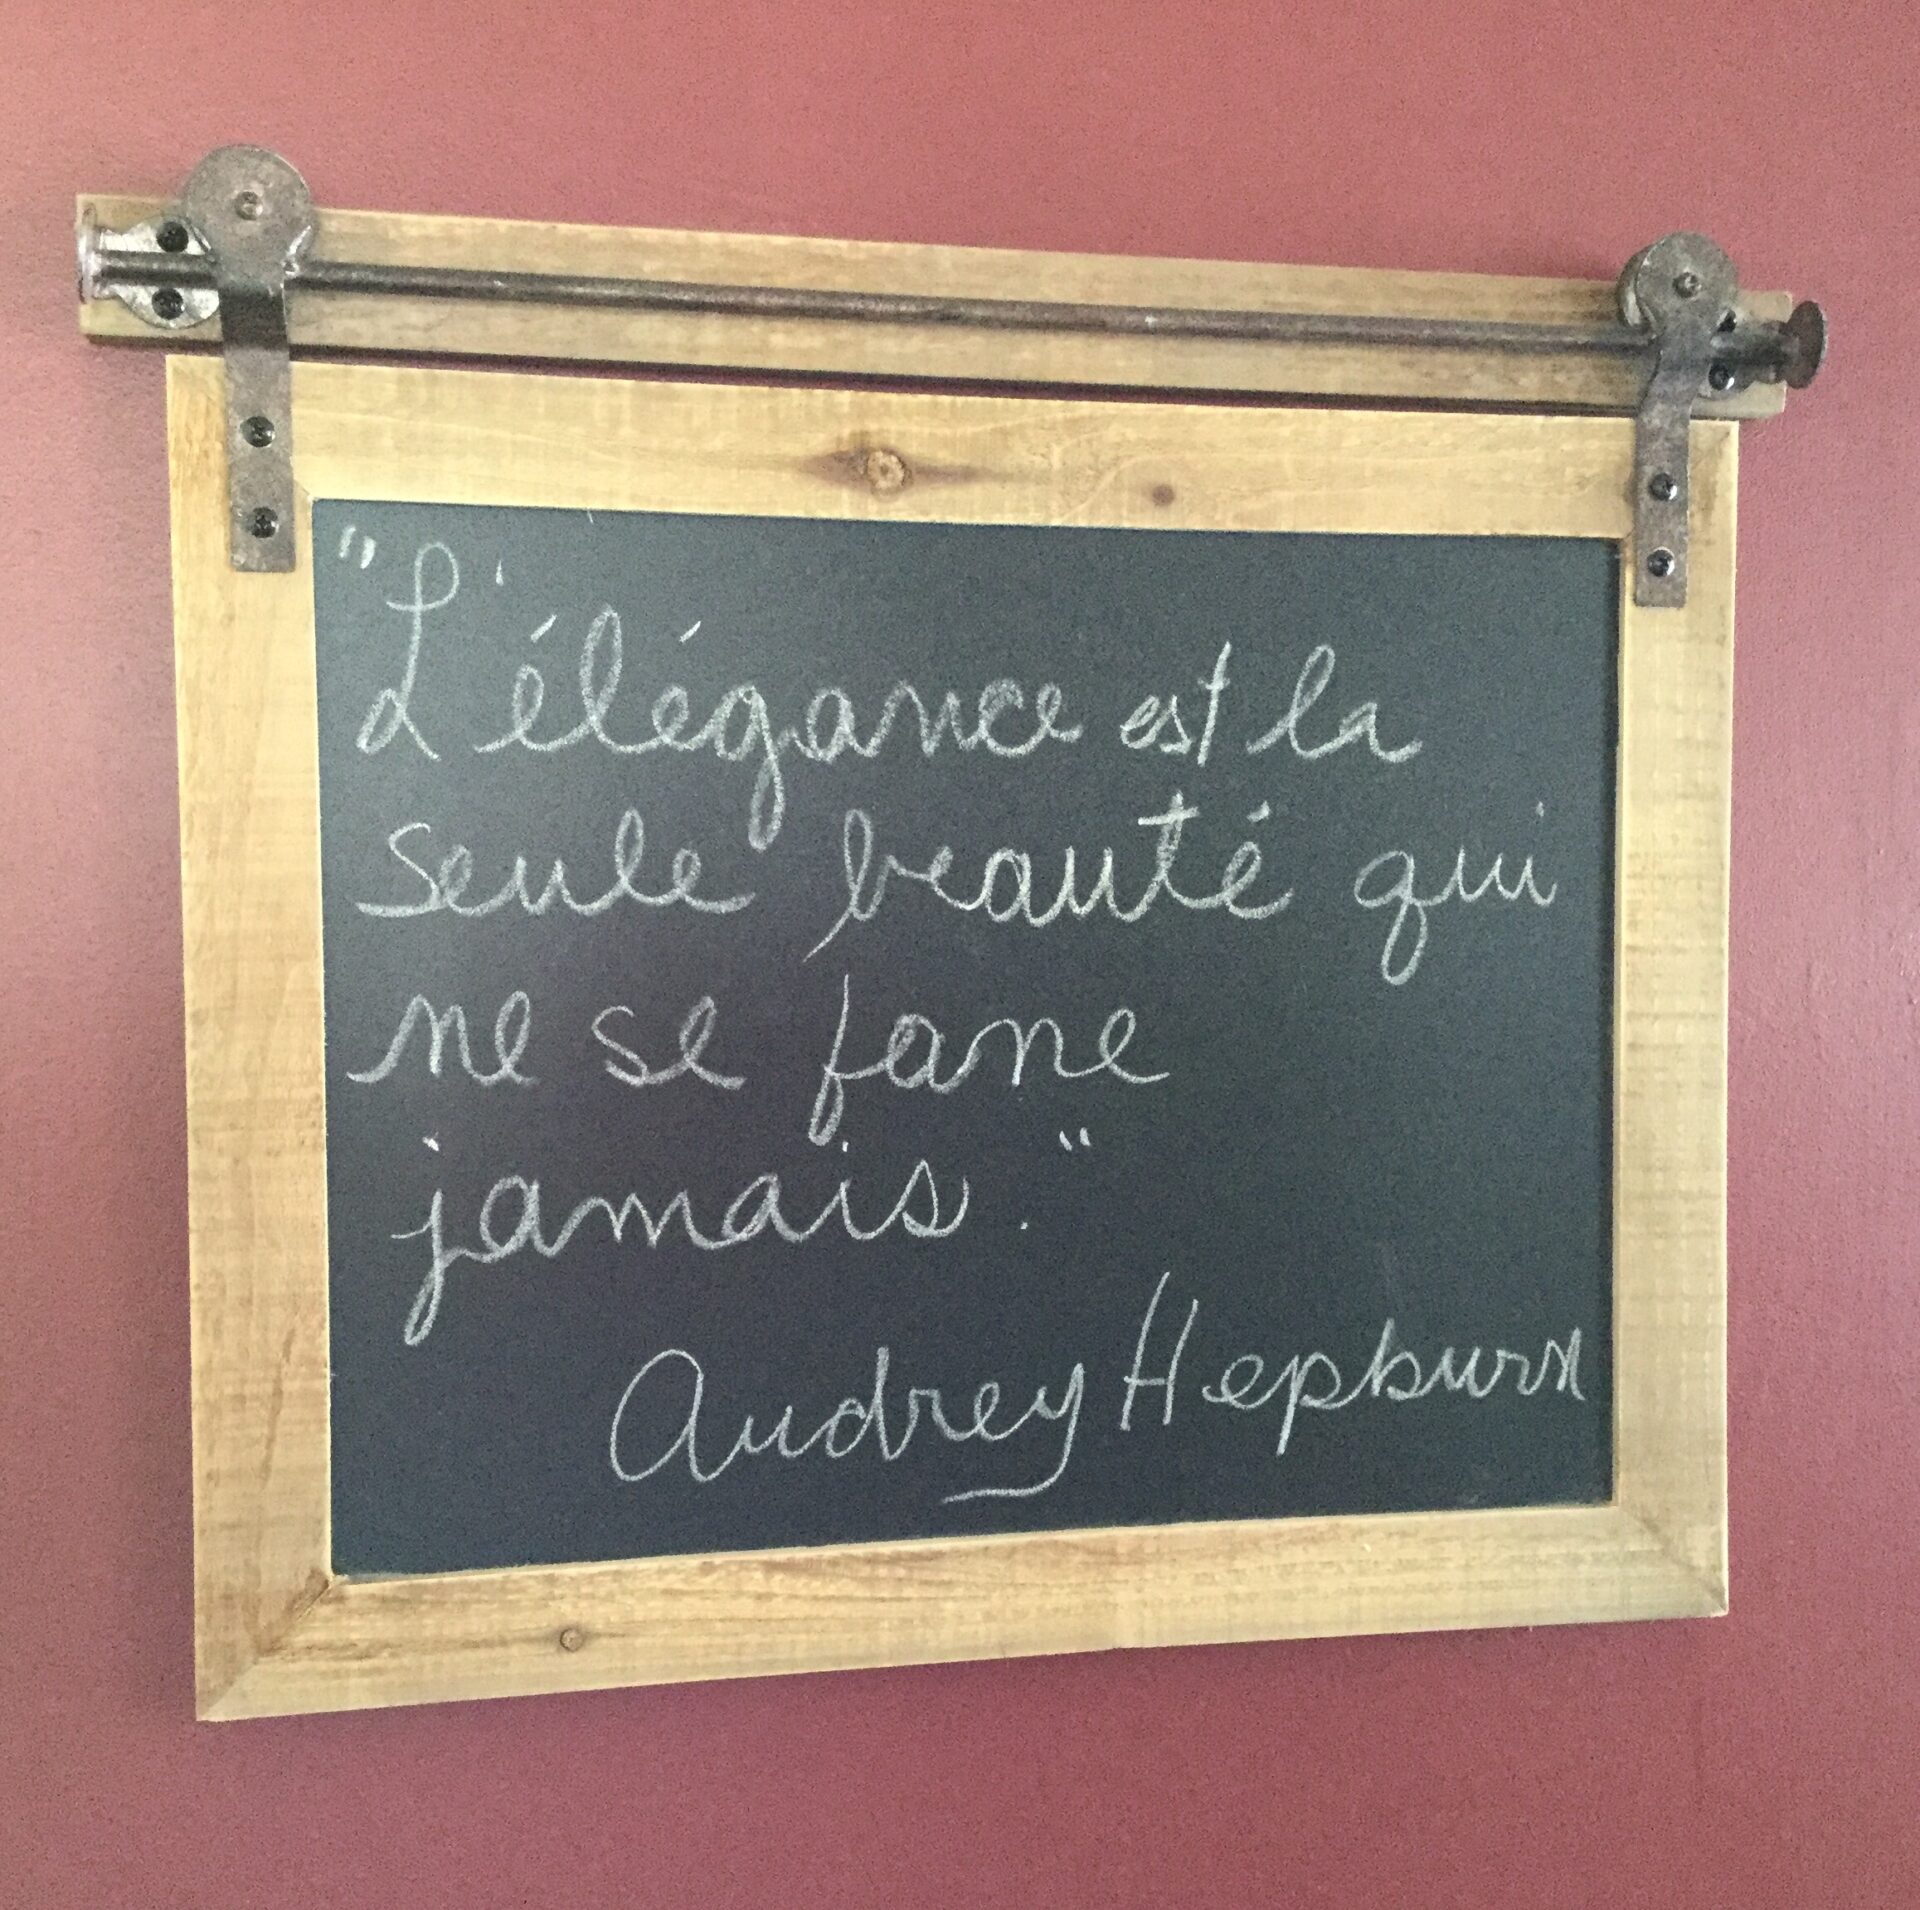 "L'élégance est la
seule beauté qui
ne se fane
jamais."
Audrey Hepburn